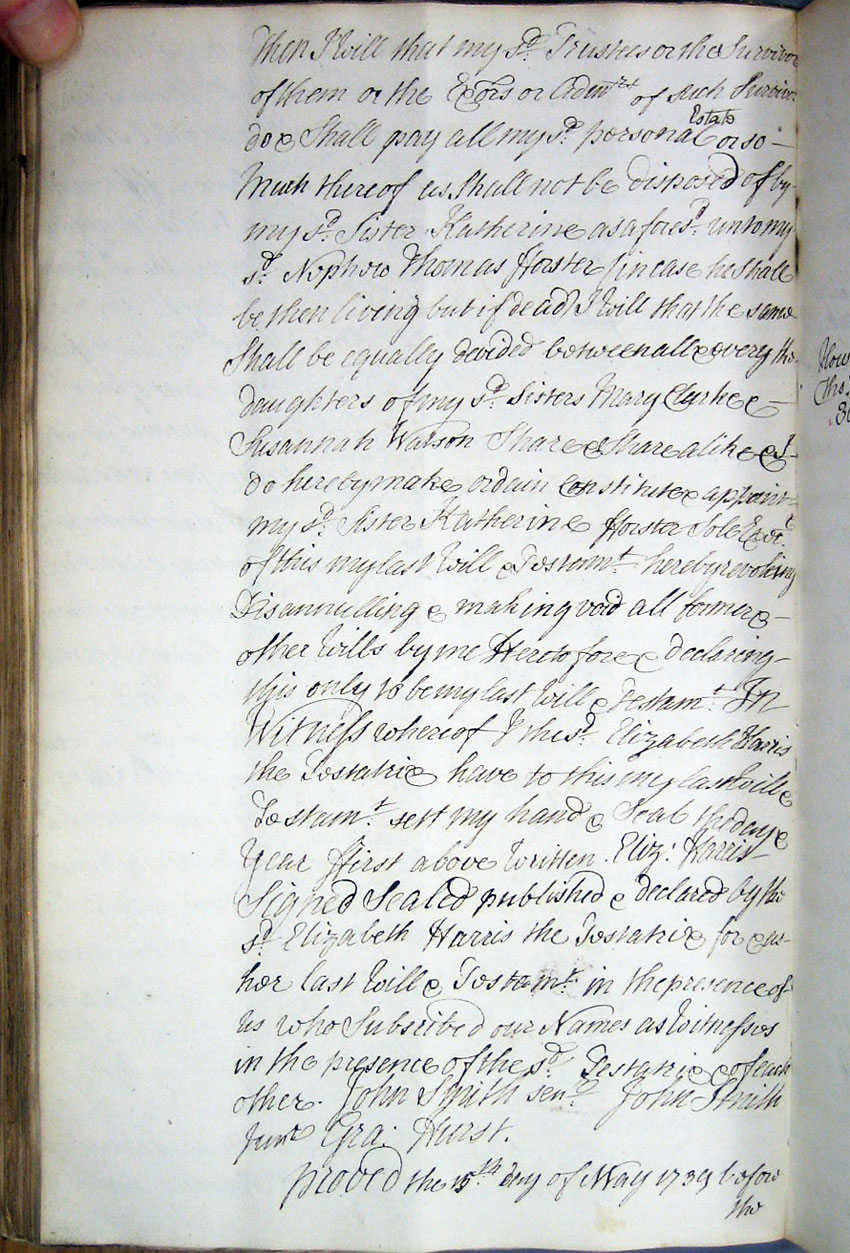 Then I will that my sd. Trustees or the Survivor
of them or the Exõrs or Admrs of such Survivor
do & Shall pay all my sd. personal Estate or so
Much thereof as Shall not be disposed of by
my sd. Sister Katherine as afores.d unto my
sd. Nephew Thomas fforster in case he shall
be then living but if dead I will that the same
Shall be equally devided between all & every the
daughters of my sd. Sisters Mary Clarke &
Susannah Watson Share & Share alike & I
do hereby make ordain Constitute & appoint
my sd. Sister Katherine fforster Sole Ex
of this my last Will & Testamt. hereby revoking
Disannulling & making void all former &
other Wills by me Heretofore & declaring
this only to be my last Will & Testamt. In
Witness whereof I the sd. Elizabeth Harris
the Testatrix have to this my last Will &
Testamt. sett my hand & Seal the day &
Year ffirst above Written. Eliz: Harris
Signed Sealed published & declared by the
sd. Elizabeth Harris the Testatrix for & as
her last Will & Testamt. in the presence of
us who Subscribed our Names as Witnesses
in the presence of the sd. Testatrix & of each
other. John Smith senr. John Smith
Junr. Gra: Hurst.
proved the 15th day of May 1739 before
the
How